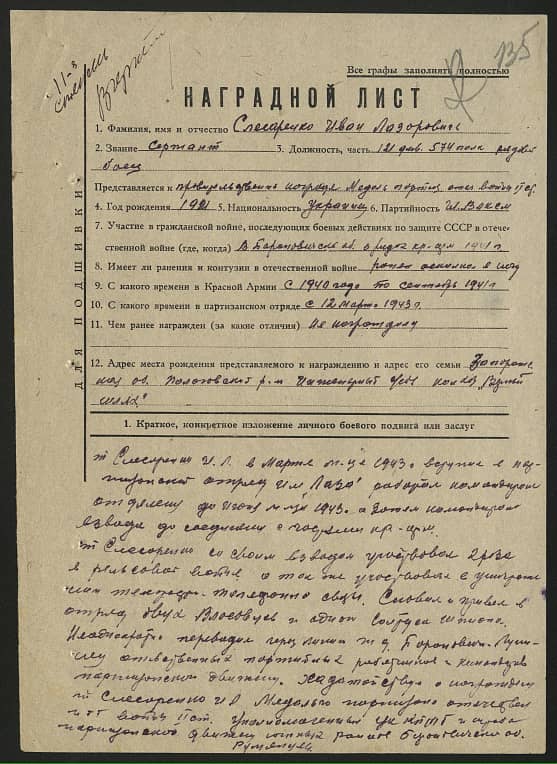 11-3
135
Все графы заполнять полностью
НАГРАДНОЙ ЛИСТ
1. Фамилия, имя и отчество Слесаренко Иван Лазорович
2. Звание Сержант 3. Должность, часть 121 див. 574 полк рядовой
боец
Представляется к правительствен награде Медаль партиз отеч войны II ст.
4. Год рождения 1921 5. Национальность Украинец 6. Партийность чл. ВЛКСМ
7. Участие в гражданской войне, последующих боевых действиях по защите СССР в отече-
ственной войне (где, когда) В Барановичской об. в рядах кр-арм 1941 г
8. Имеет ли ранения и контузии в отечественной войне ранен осколком в ногу
9. С какого времени в Красной Армии с 1940 года по сентябрь 1941 г
10. С какого времени в партизанском отряде с 12 марта 1943 г.
11. Чем ранее награжден (за какие отличия) Не награждал
12. Адрес места рождения представляемого к награждению и адрес его семьи Запорож-
ская об. Пологовский р-н с/с колхоз
шлях"
ДЛЯ ПОДШИВКИ
1. Краткое, конкретное изложение личного боевого подвига или заслуг
т. Слесаренко И. Л. в Марте м-це 1943 г. вступил в пар-
тизанский отряд им "Лазо" работал командиром
отделения до июня м-ца 1943 г. а затем командиром
взвода до соединения с частями кр-арм.
т Слесаренко со своим взводом участвовал 2 раза
в рельсовой войне а так же участвовал в уничтоже
нии телефонно связи. Словил и привел в
отряд двух Власовцев и одного шпиона.
Неоднократно переводил через линию ж д. Барановичи-Луни-
нец ответственных партийных работников и командиров
партизанского движения. Ходатайствую о награждении
т Слесаренко И Л Медалью партизану отечествен
ной войны II ст. Уполномоченный ЦК КП/б/Б и штаба
партизанского движен южных районов Барановичской об.